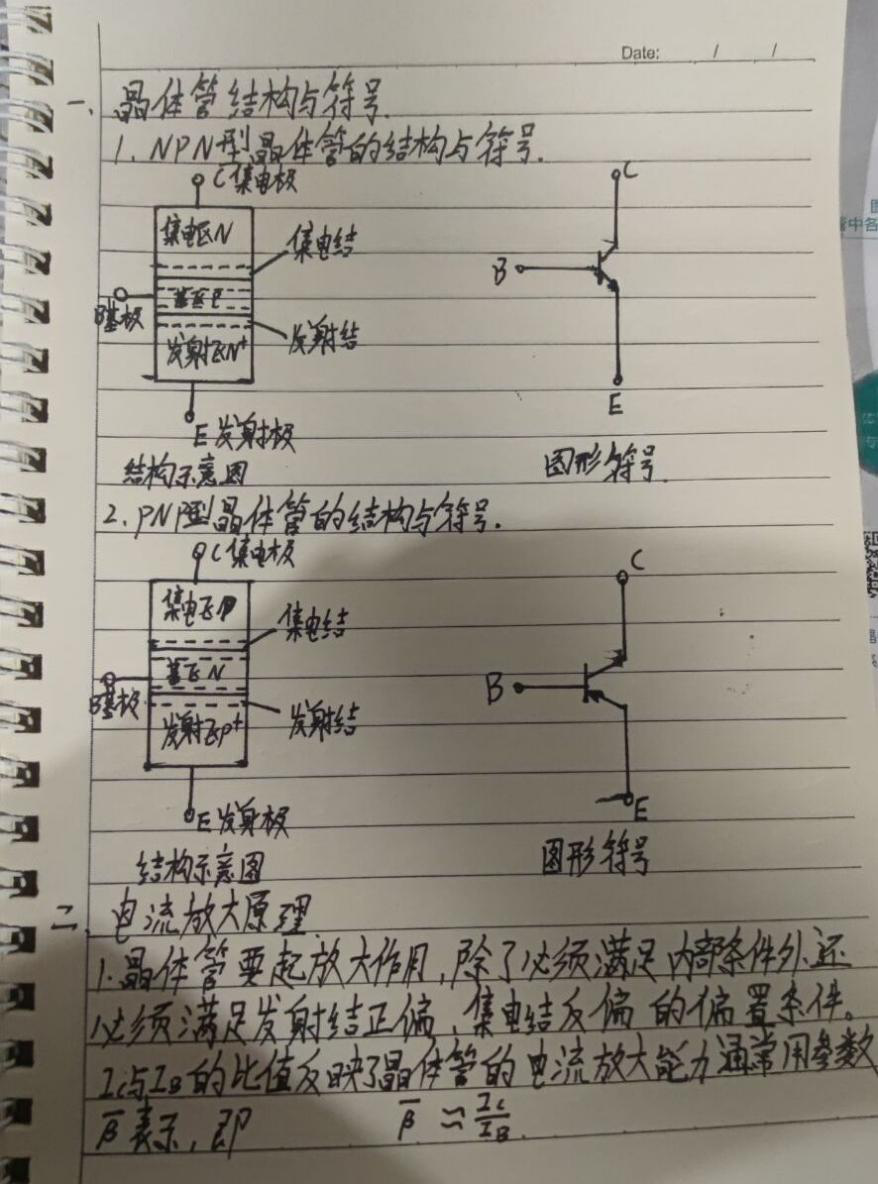 Date: / /
一、晶体管结构与符号.
1. NPN型晶体管的结构与符号.
C集电极
集电区N
集电结
B基极
基区P
发射区N+
发射结
E发射极
结构示意图
C
B
E
图形符号.
2. PNP型晶体管的结构与符号.
C集电极
集电区P
集电结
B基极
基区N
发射区P+
发射结
E发射极
结构示意图
C
B
E
图形符号
二、电流放大原理
1.晶体管要起放大作用,除了必须满足内部条件外,还
必须满足发射结正偏、集电结反偏的偏置条件。
IC与IB的比值反映了晶体管的电流放大能力通常用参数
β̅表示,即 β̅≈IC/IB.
管中各